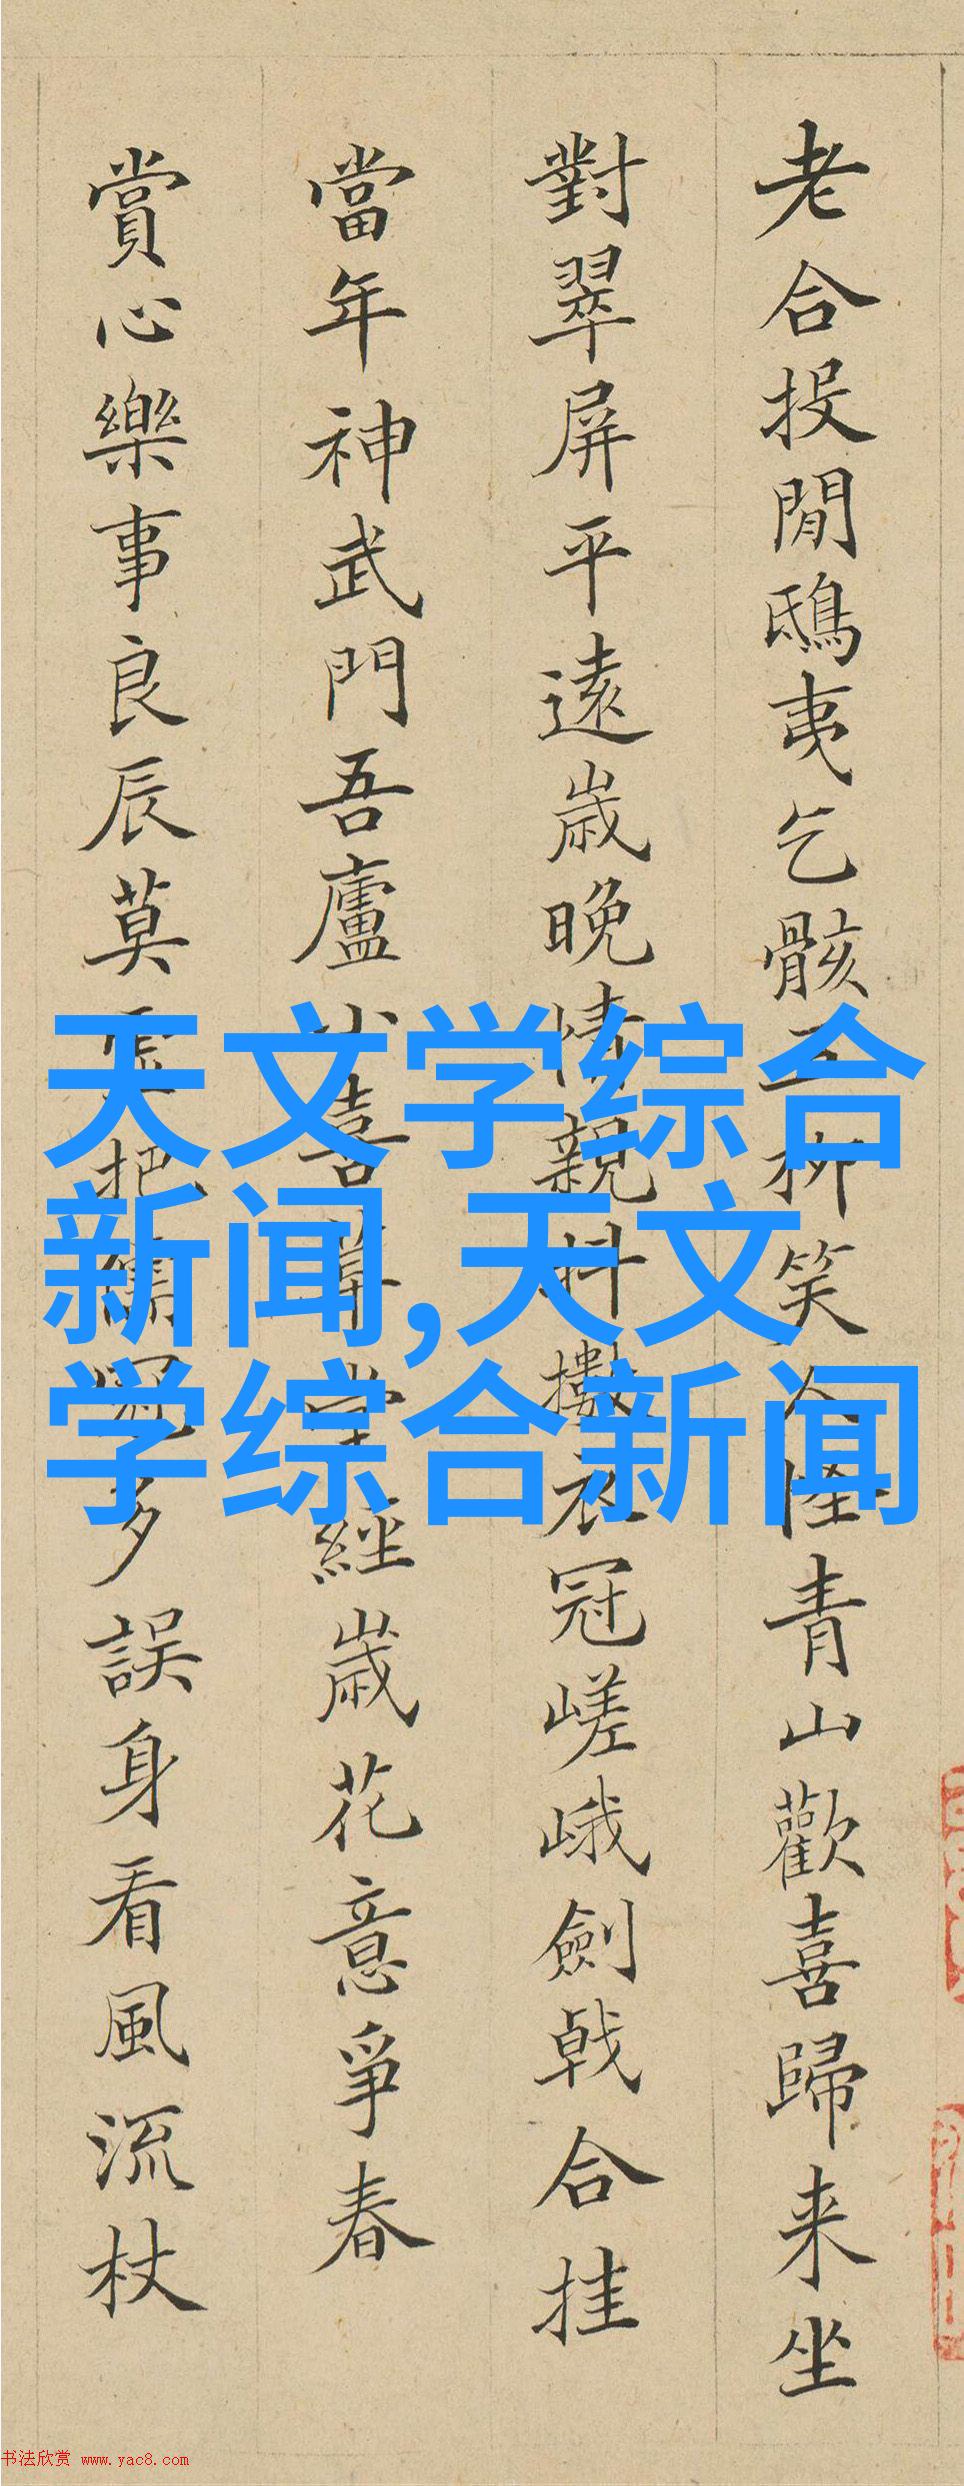 老合投閒鴟夷乞骸五柳笑人怪青山歡喜歸来坐
對翠屏平遠歲晚情親抖擻衣冠嵯峨劍戟合挂
當年神武門吾廬喜草堂經歲花意爭春
賞心樂事良辰莫虛把儒冠多誤身看風流杖
天文学综合
新闻,天文
学综合新闻
书法欣赏 www.yac8.com